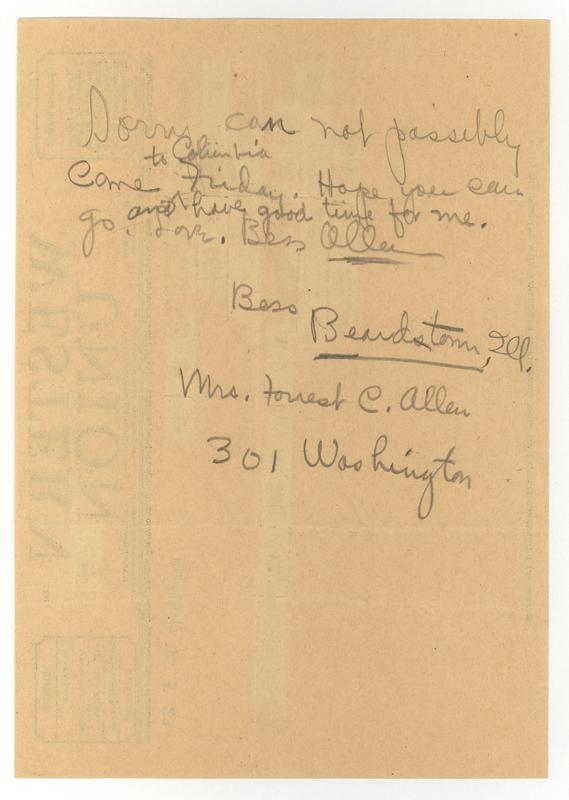 Sorry can not possibly
to Columbia
Come Friday. Hope you can
and have good time for me.
go. Love. Bess Allen
Bess
Beardstown, Ill.
Mrs. Forrest C. Allen
301 Washington
WESTERN
UNION